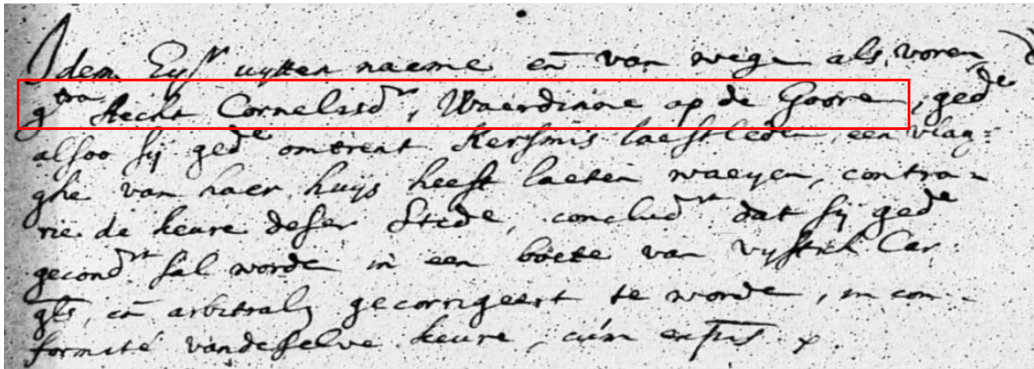 Idem Eyssr uytten naeme en van wegen als voren,
gtra Aecht Cornelisdr, Waerdinne op de Goore, gede
alsoo sij gede omtrent Kersmis laestleden een vlag=
ghe van haer huijs heeft laeten waeyen, contra=
rie de keure deser Stede, concludrt dat sij gede
gecondrt sal worde in een boete van vyftich Car.
gls, en arbitraly gecorrigeert te worde, in con=
formité vandeselve keure, cum expens